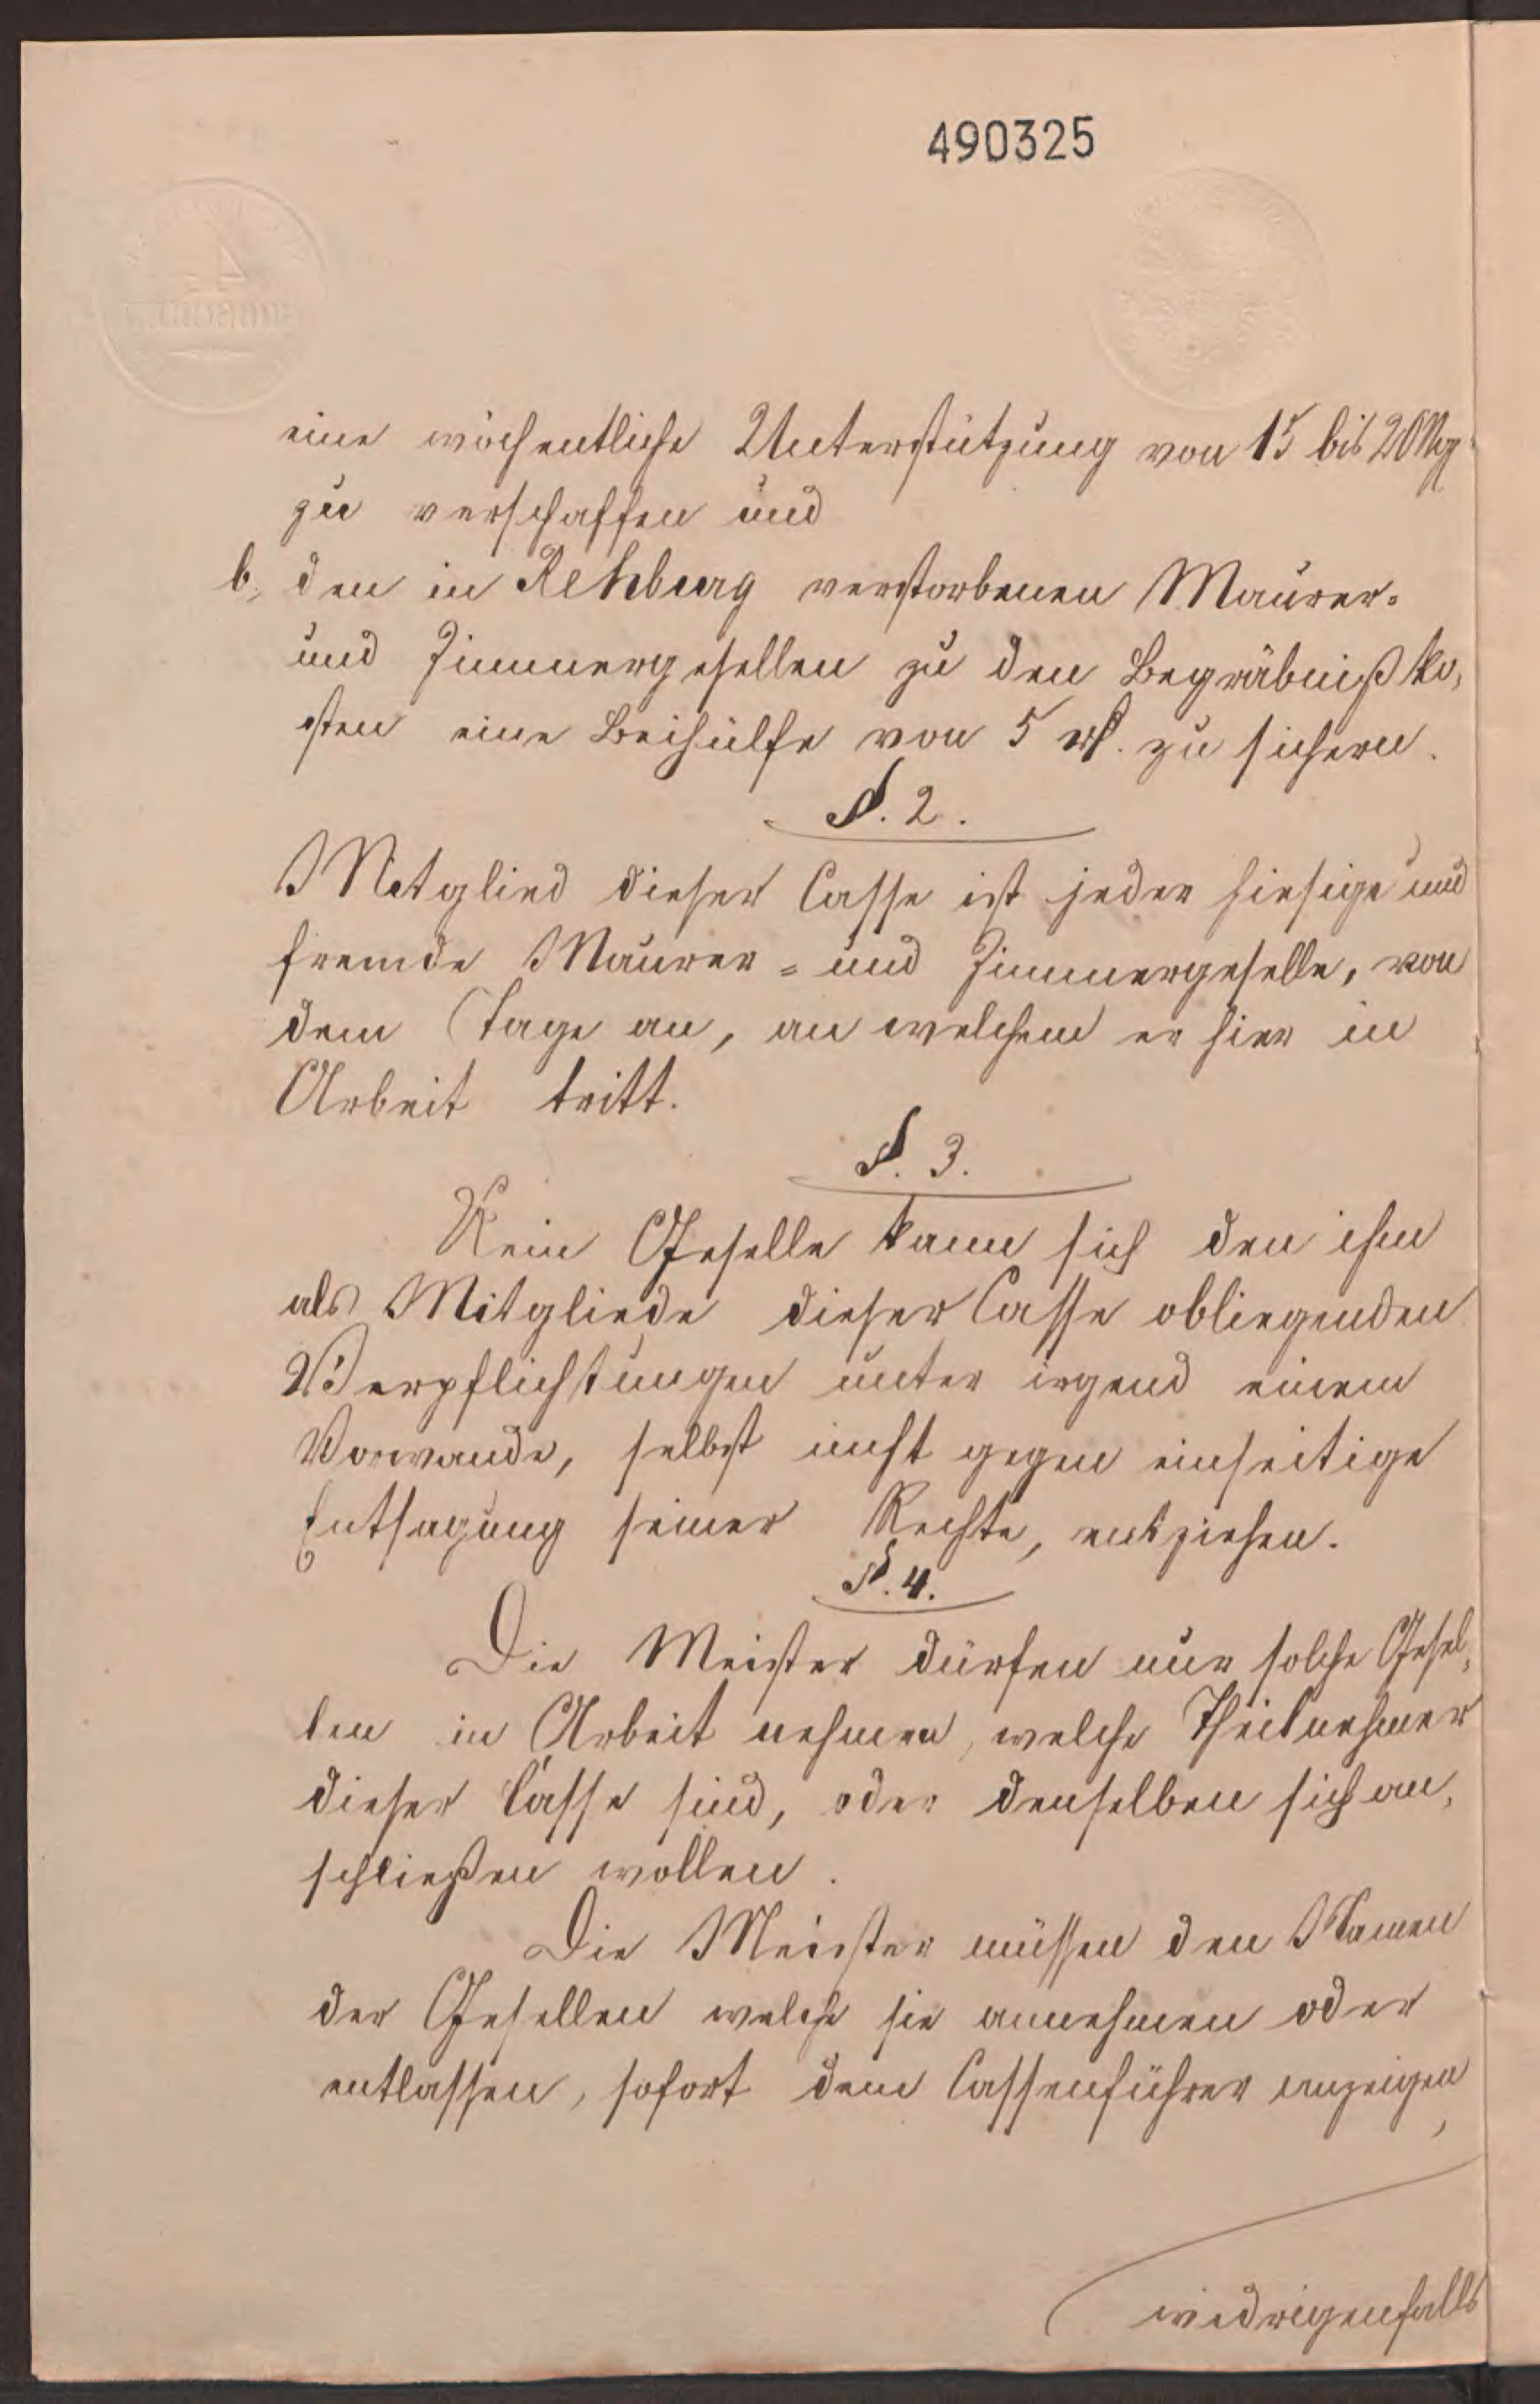 490325
eine wöchentliche Unterstützung von 15 bis 20 Ng
zu verschaffen und
b, den in Rehburg verstorbenen Maurer-
und Zimmergesellen zu den Begräbnißko,
sten eine Beihülfe von 5 rℓ. zu sichern.
§. 2.
Mitglied dieser Casse ist jeder hiesige und
fremde Maurer- und Zimmergeselle, von
dem Tage an, an welchem er hier in
Arbeit tritt.
§. 3.
Kein Geselle kann sich den ihm
als Mitgliede dieser Casse obliegenden
Verpflichtungen unter irgend einem
Vorwande, selbst nicht gegen einseitige
Entsagung seiner Rechte, entziehen.
§. 4.
Die Meister dürfen nur solche Gesel,
len in Arbeit nehmen, welche Theilnehmer
dieser Casse sind, oder denselben sich an,
schließen wollen.
Die Meister müssen den Namen
der Gesellen welche sie annehmen oder
entlassen, sofort dem Cassenführer anzeigen,
widrigenfalls